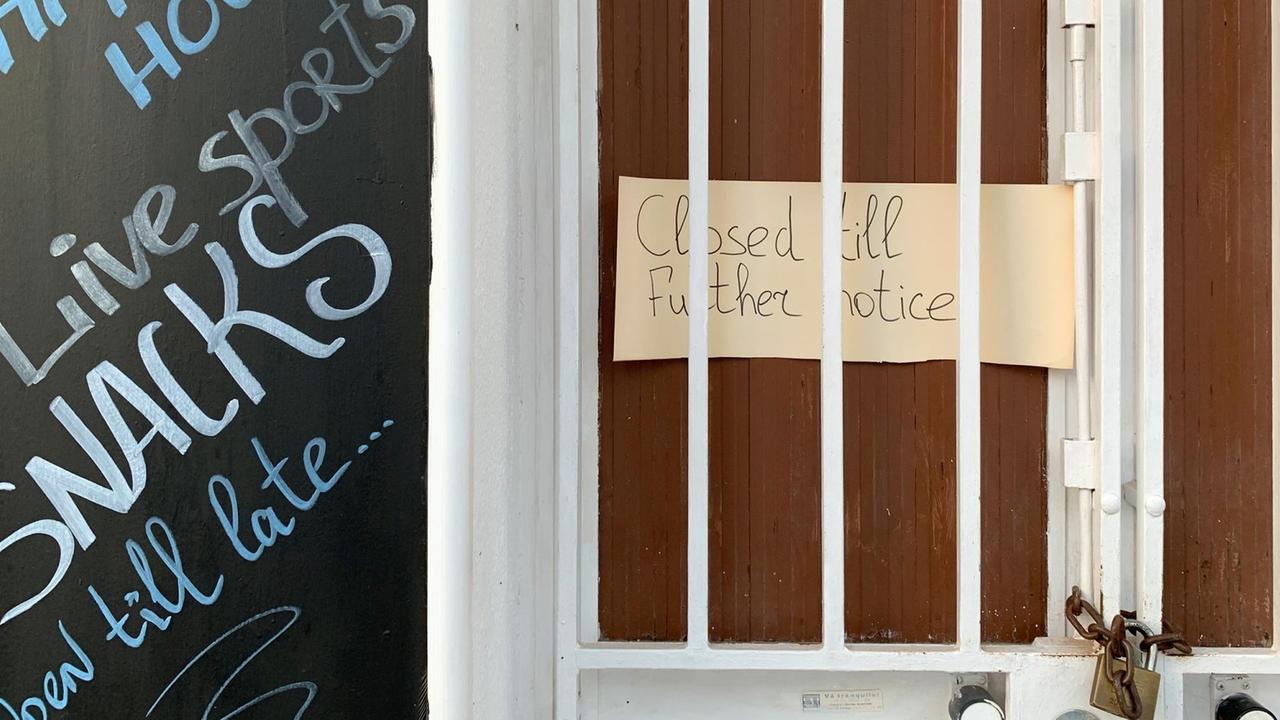 HOU
Live sports
SNACKS
open till late...
Closed till
Further notice
Vá tranquilo!